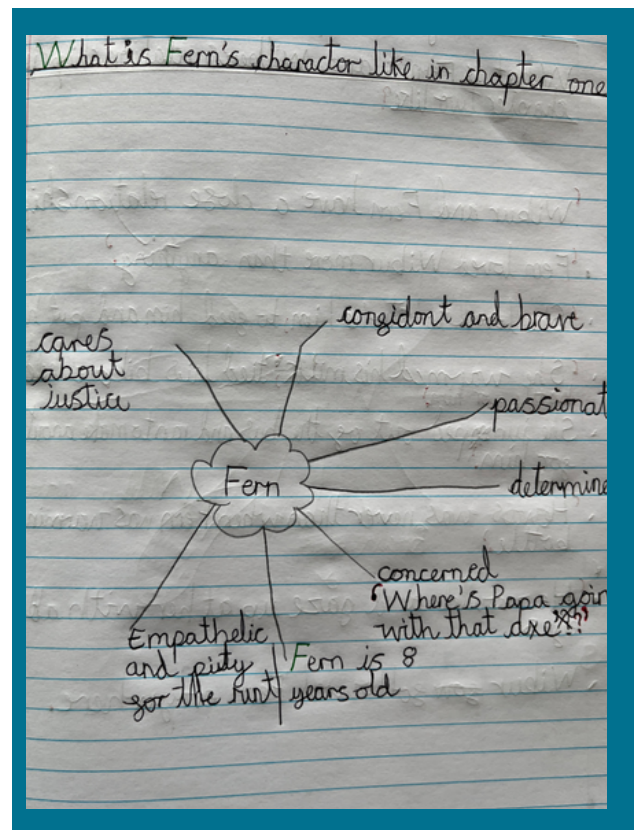 What is Fern's charactor like in chapter one
confidont and brave
cares
about
justice
passionat
determine
Fern
concerned
"Where's Papa goin
with that axe"??
Empathetic
and piety
for the runt
Fern is 8
years old